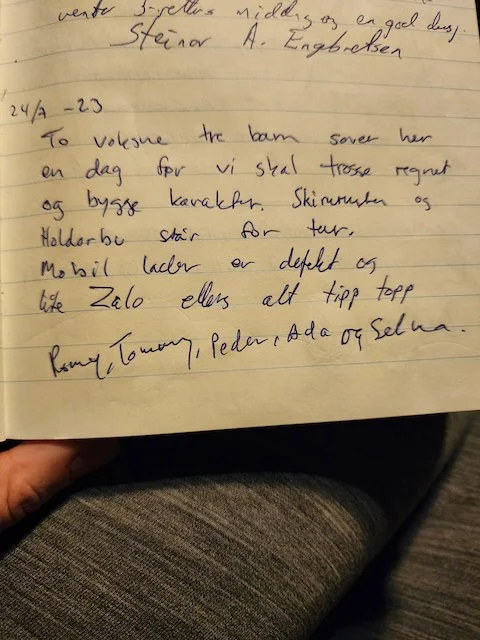 venter 3-retters middag og en god dusj.
Steinar A. Engbretsen
24/7 -23
To voksne tre barn sover her
en dag før vi skal trosse regnet
og bygge karakter. og
Holdarbu står for tur.
Mobil lader er defekt og
lite Zalo ellers alt tipp topp
Tommy, Peder, Ada og Selma.